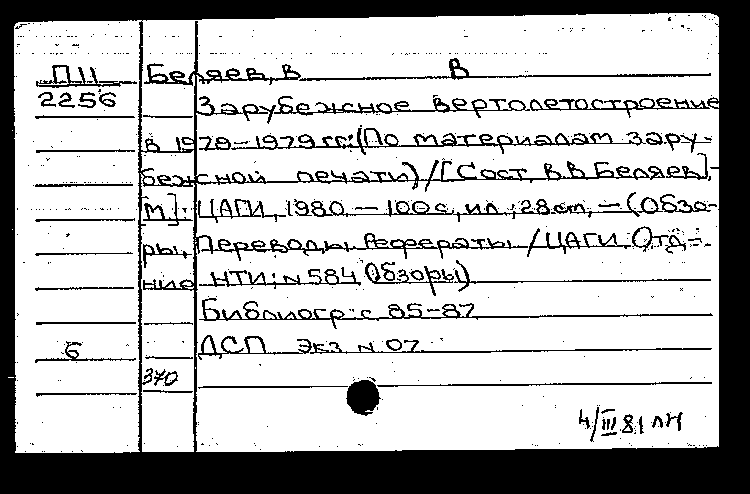 П11 Беляев, В В
2256 Зарубежное вертолетостроение
в 1978-1979 гг: (По материалам зару-
бежной печати) / [Сост. В.В. Беляев], -
[М]: ЦАГИ, 1980. - 100 с., ил.; 28 cm, - (Обзо-
ры, Переводы. Рефераты / ЦАГИ. Отд-
ние НТИ; N 584 (Обзоры)
Библиогр: с 85-87
6 ДСП Экз N 07
370
4/III 81 ЛН